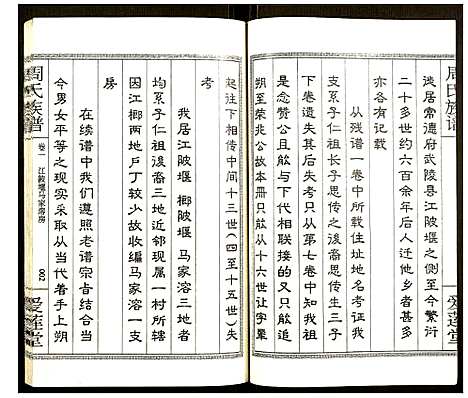 周氏族谱
爱莲堂
迭居常德府武陵县江陂堰之侧至今繁衍
二十多世约六百余年矣迁徙时地址不同
亦各有记载
从残谱一卷中所载住址地名考证我
支系子仁祖长子思传之後裔思传生三子
下卷遗失其后失考只从第七卷中知我祖
是念赞公且歍与下代相联接的又只歍追
朔至荣兆公故本册只得从十六世让字辈
起往下相传中间十三世（四至十五世）失
考
我居江陂堰 榔陂堰 马家溶三地者
均系子仁祖後裔三地近邻现属一村所辖
因江榔两地户丁较少故收编马家溶一支
房
在续谱中我们遵照老谱宗旨结合当
今男女平等之现实采取从当代着手上朔
周氏族谱
卷一
江陂堰马家溶房
爱莲堂